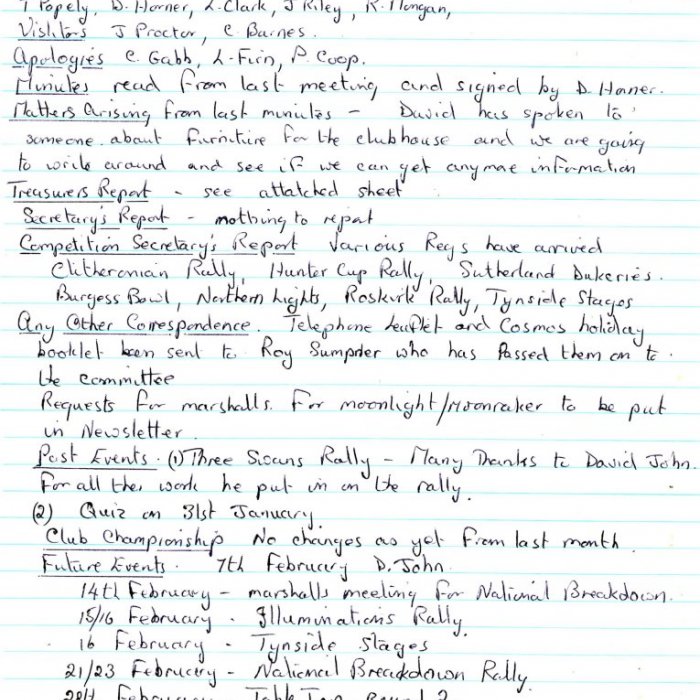 T Popely, D. Horner, L. Clark, J Riley, R. Mongan,
Visitors J Proctor, C Barnes.
Apologies C. Gabb, L. Firn, P. Coop.
Minutes read from last meeting and signed by D. Horner.
Matters arising from last minutes - David has spoken to
someone about furniture for the clubhouse and we are going
to write around and see if we can get anymore information
Treasurers Report - see attatched sheet
Secretary's Report - nothing to report
Competition Secretary's Report Various Regs have arrived
Clitheronian Rally, Hunter Cup Rally, Sutherland Dukeries.
Burgess Bowl, Northern Lights, Roskirk Rally, Tynside Stages
Any Other Correspondence. Telephone leaflet and Cosmos holiday
booklet been sent to Roy Sumpner who has passed them on to
the committee
Requests for marshalls for moonlight/Moonraker to be put
in Newsletter.
Past Events. (1) Three Swans Rally - Many Thanks to David John.
For all the work he put in on the rally.
(2) Quiz on 31st January.
Club Championship No changes as yet from last month.
Future Events. 7th February D. John.
14th February - marshalls meeting for National Breakdown.
15/16 February. Illuminations Rally.
16 February - Tynside Stages
21/23 February - National Breakdown Rally.
28th February - Table Top Round 2